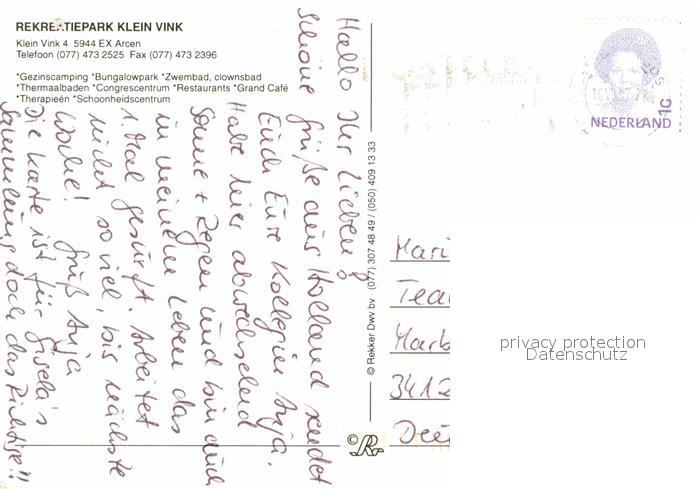 REKREATIEPARK KLEIN VINK
Klein Vink 4 5944 EX Arcen
Telefoon (077) 473 2525 Fax (077) 473 2396
*Gezinscamping *Bungalowpark *Zwembad, clownsbad
*Thermaalbaden *Congrescentrum *Restaurants *Grand Café
*Therapieën *Schoonheidscentrum
Hallo Ihr Lieben!
Schöne Grüße aus Holland sendet
Euch Eure Kollegin Anja.
Habe hier abwechselnd
Sonne + Regen und bin auch
in meinem Leben das
1. Mal gesurft. Arbeitet
nicht so viel, bis nächste
Woche! Gruß Anja
Die Karte ist für Gisela's
Sammlung doch das Richtige!!
© Rekker Dwv bv. (077) 307 48 49 / (050) 409 13 33
©R
NEDERLAND
Mari
Tea
Marb
3412
Deu
privacy protection
Datenschutz